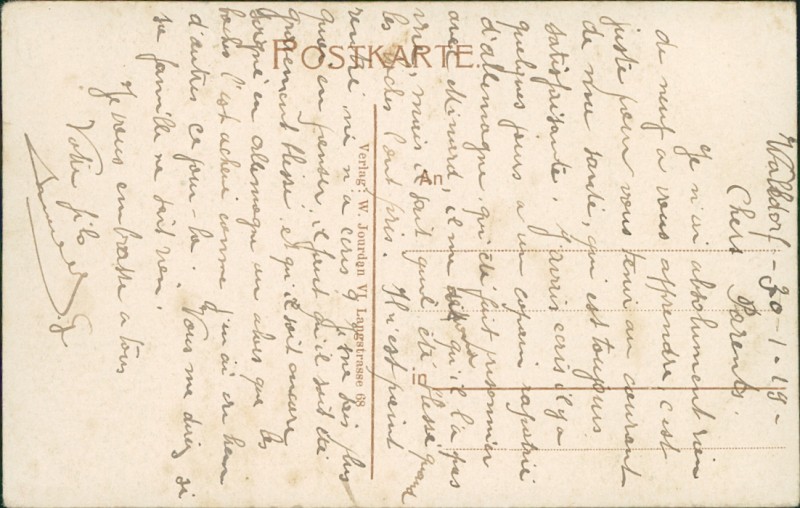 POSTKARTE.
An
in
Verlag: W. Jourdan VI, Langstrasse 68
Walldorf - 20-1-19-
Chers Parents.
Je n'ai absolument rien
de neuf a vous apprendre c'est
juste pour vous tenir au courant
de ma santé, qui est toujours
satisfaisante. J'avais écris il y a
quelques jours a un copain rapatrié
d'allemagne, qui été fait prisonnier
avec Minard, il me dit qu'il l'a pas
vu, mais il sait qu'il été blessé quand
les boches l'ont pris. Il n'est point
rentré, ni n'a écris
quoi en penser, il faut qu'il soit dé
gravement blessé et qu'il soit mouru
soigné en allemagne ou alors que les
boches l'est achevé comme j'en ai vu bien
d'autres ce jour-la. Vous me direz si
sa famille ne sait rien.
Je vous embrasse a tous
Votre fils